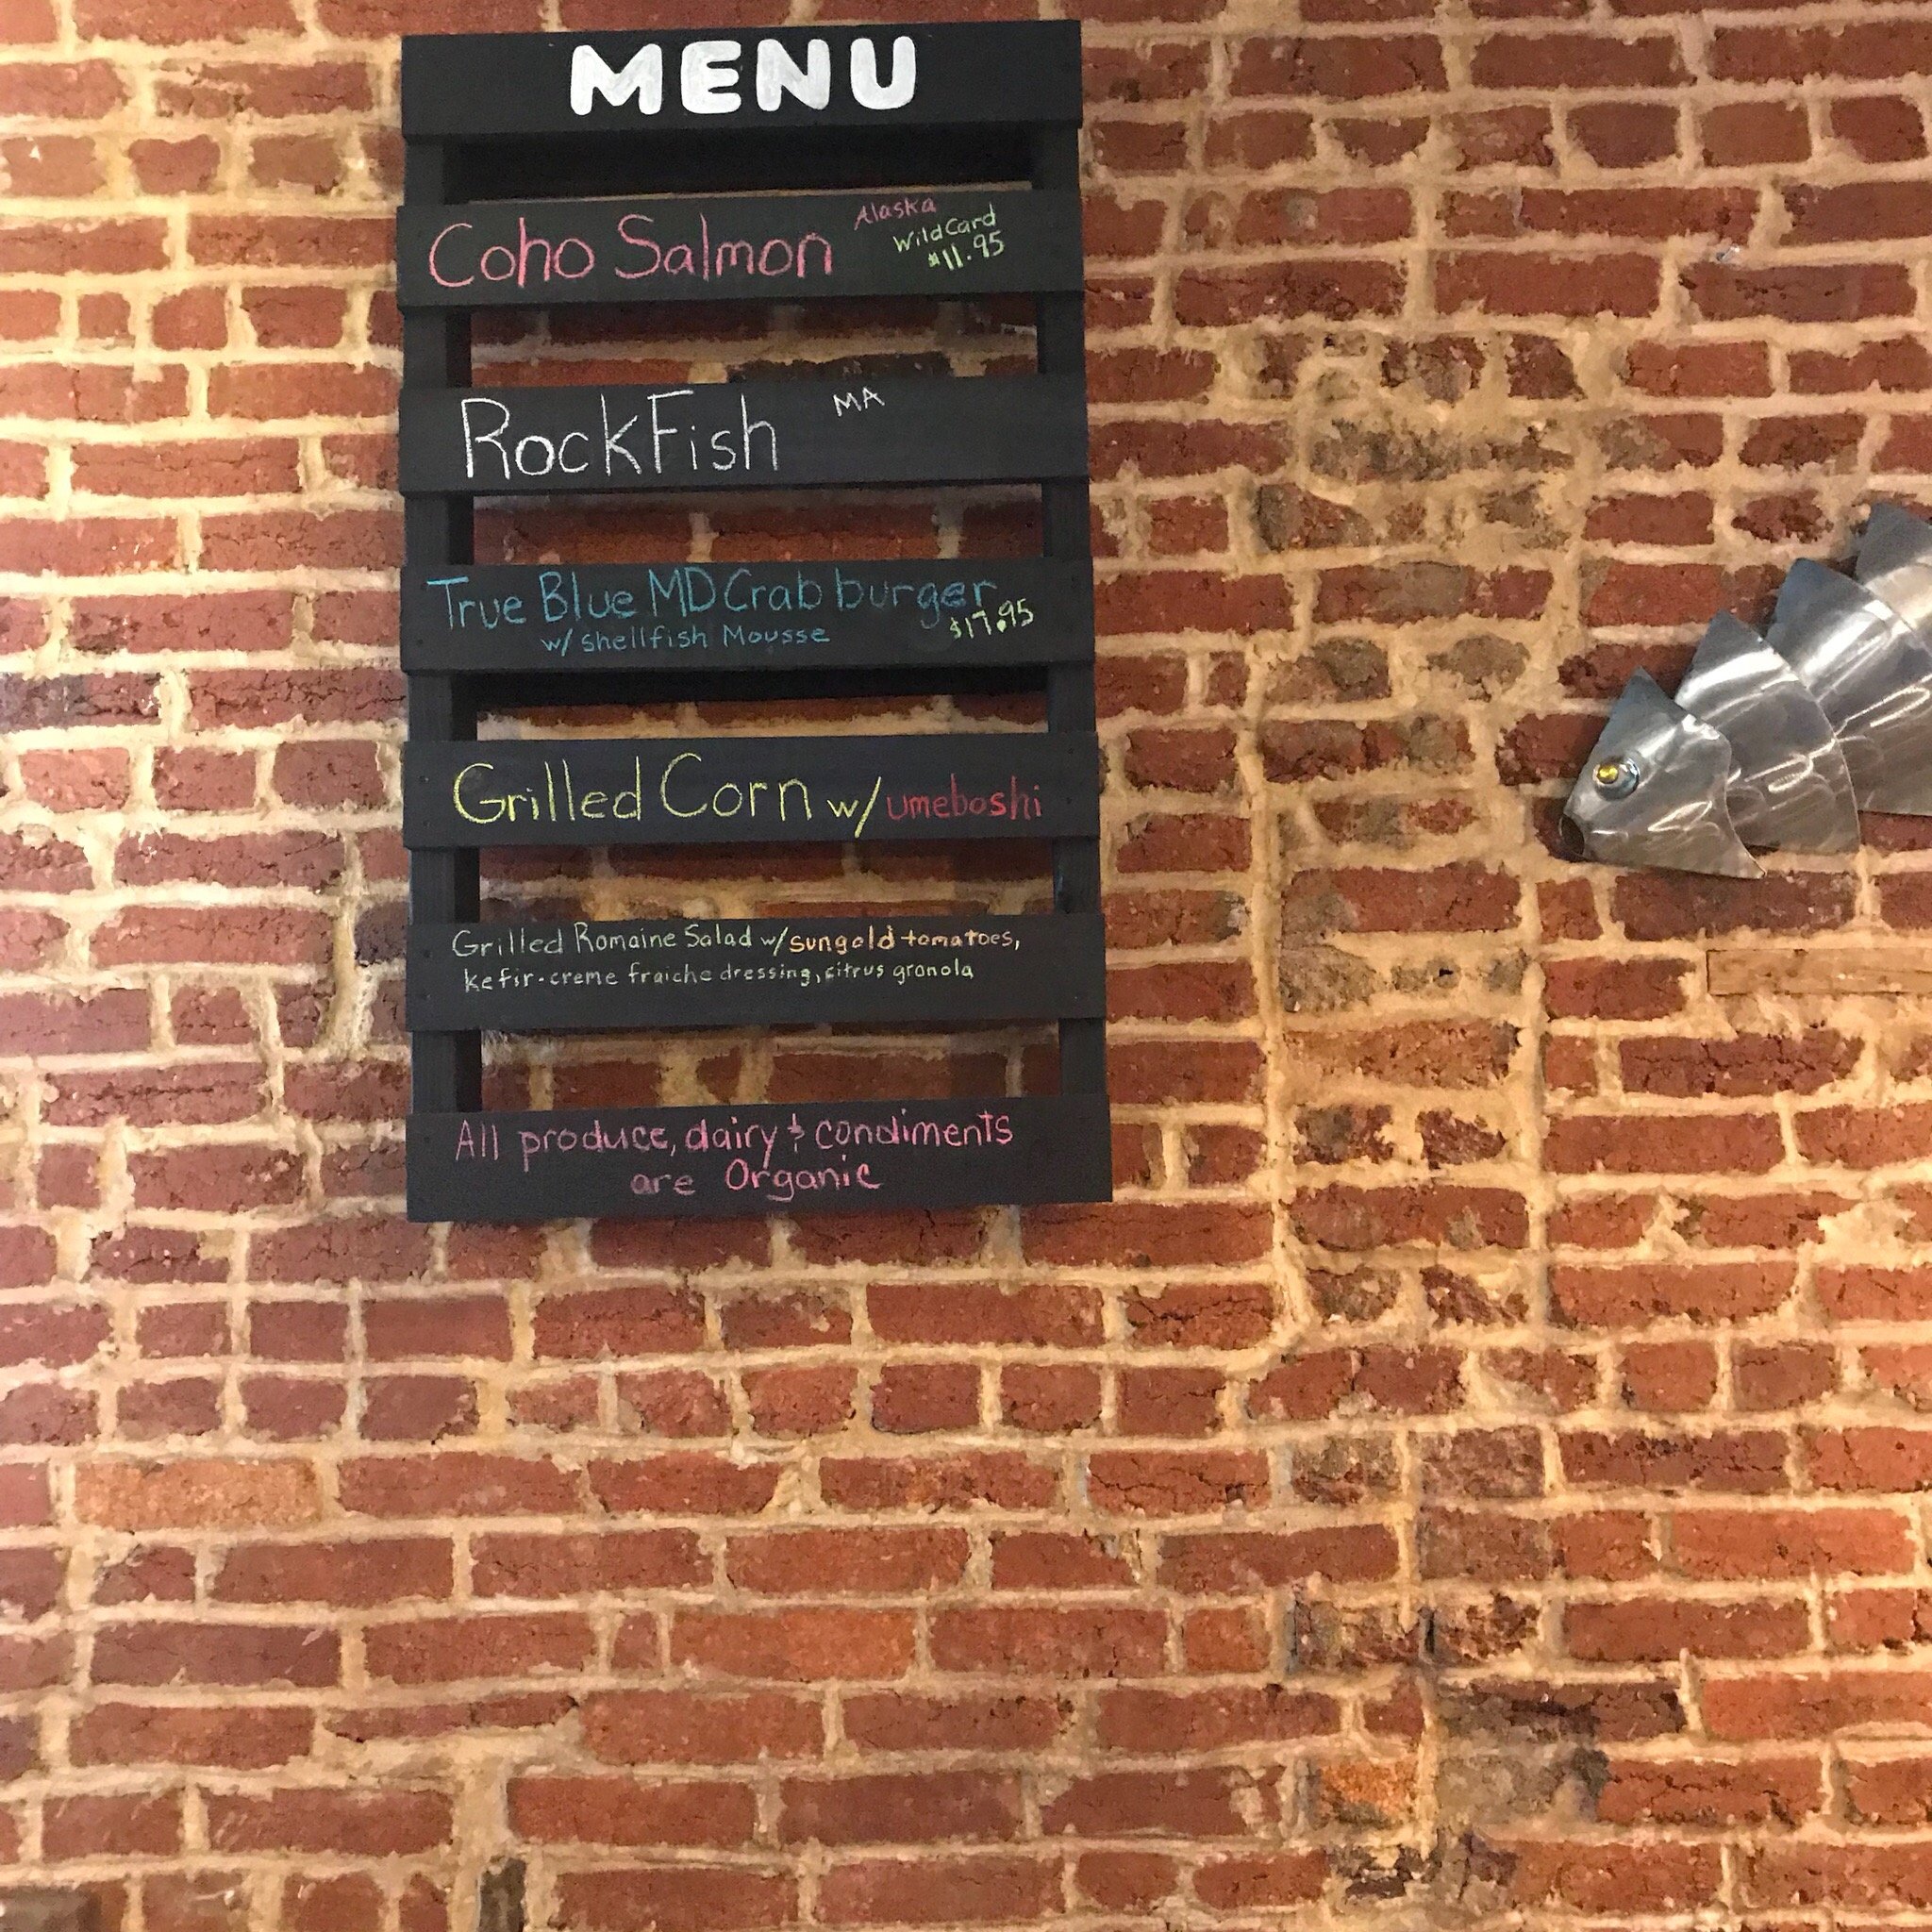 MENU
Coho Salmon Alaska
WildCard
$11.95
RockFish MA
True Blue MD Crab burger
w/ shellfish Mousse $17.95
Grilled Corn w/ umeboshi
Grilled Romaine Salad w/ sungold tomatoes,
kefir-creme fraiche dressing, citrus granola
All produce, dairy & condiments
are Organic